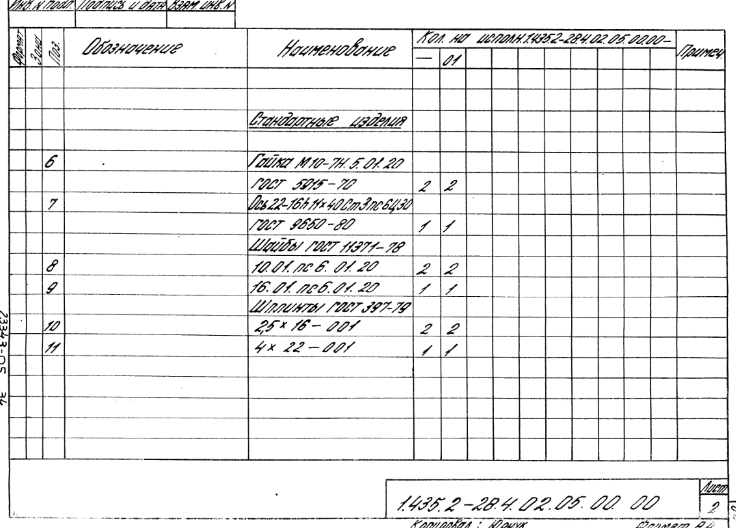 Инв. № подл. Подпись и дата Взам. инв. №
Формат Зона Поз. Обозначение Наименование Кол. на исполн. 1.435.2-28.4.02.05.00.00- Примеч.
— 01
Стандартные изделия
6 Гайка М10-7Н.5.01.20
ГОСТ 5915-70 2 2
7 Ось 22-16h11×40 Ст3пс6Ц30
ГОСТ 9650-80 1 1
Шайбы ГОСТ 11371-78
8 10.01.пс6.01.20 2 2
9 16.01.пс6.01.20 1 1
Шплинты ГОСТ 397-79
10 2,5×16-001 2 2
11 4×22-001 1 1
23343-05 34
1.435.2-28.4.02.05.00.00
Лист
2
Копировал: Формат А4